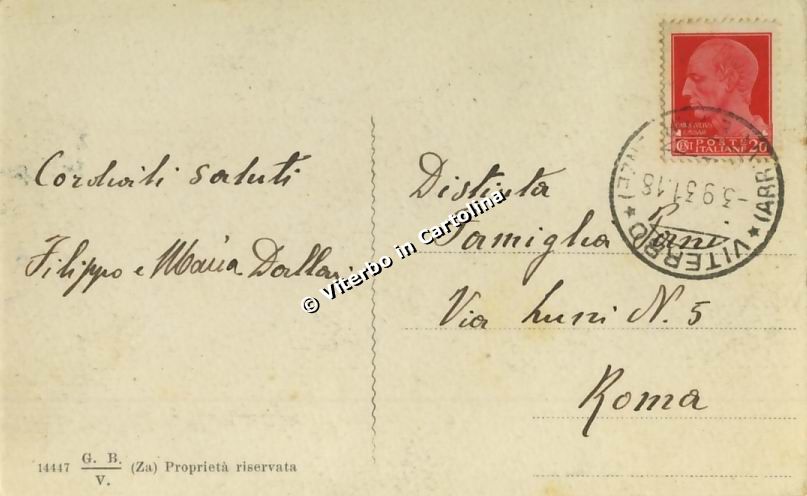 Cordiali saluti
Filippo e Maria Dallari
Distinta
Famiglia
Via Luni N. 5
Roma
POSTE
ITALIANE 20
VITERBO
-3.9.31.18
© Viterbo in Cartolina
14447 G. B. V. (Za) Proprietà riservata